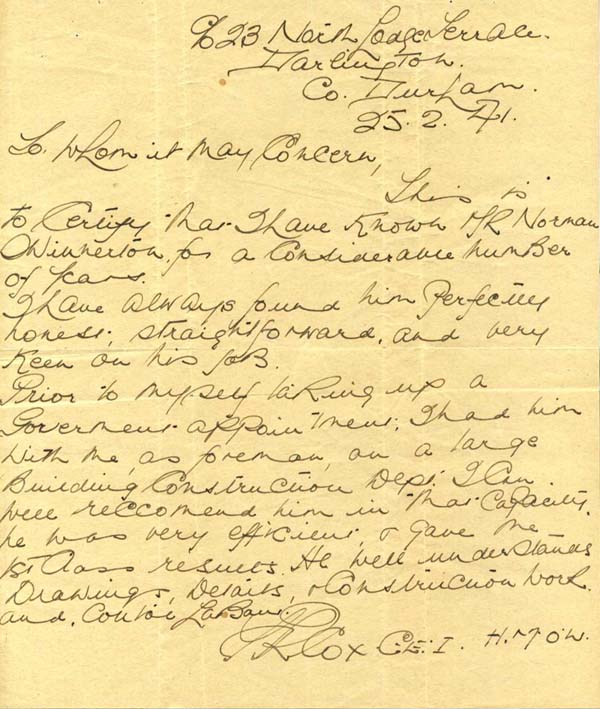 c/o 23 North Lodge Terrace.
Darlington.
Co. Durham.
25. 2. 41.
To. Whom it May Concern,
This is
to Certify that I have Known Mr Norman
Winnerton, for a Considerable number
of years.
I have always found him Perfectly
honest, straightforward, and very
Keen on his job.
Prior to myself taking up a
Goverment appointment, I had him
with me, as foreman, on a large
Building Construction Dept. I Can
well reccomend him in that Capacity,
he was very efficient, & gave me
1st Class results. He well understands
Drawings, Details, & Construction work.
and, Control Labour.
Cox C.E.I. H.M.O.W.